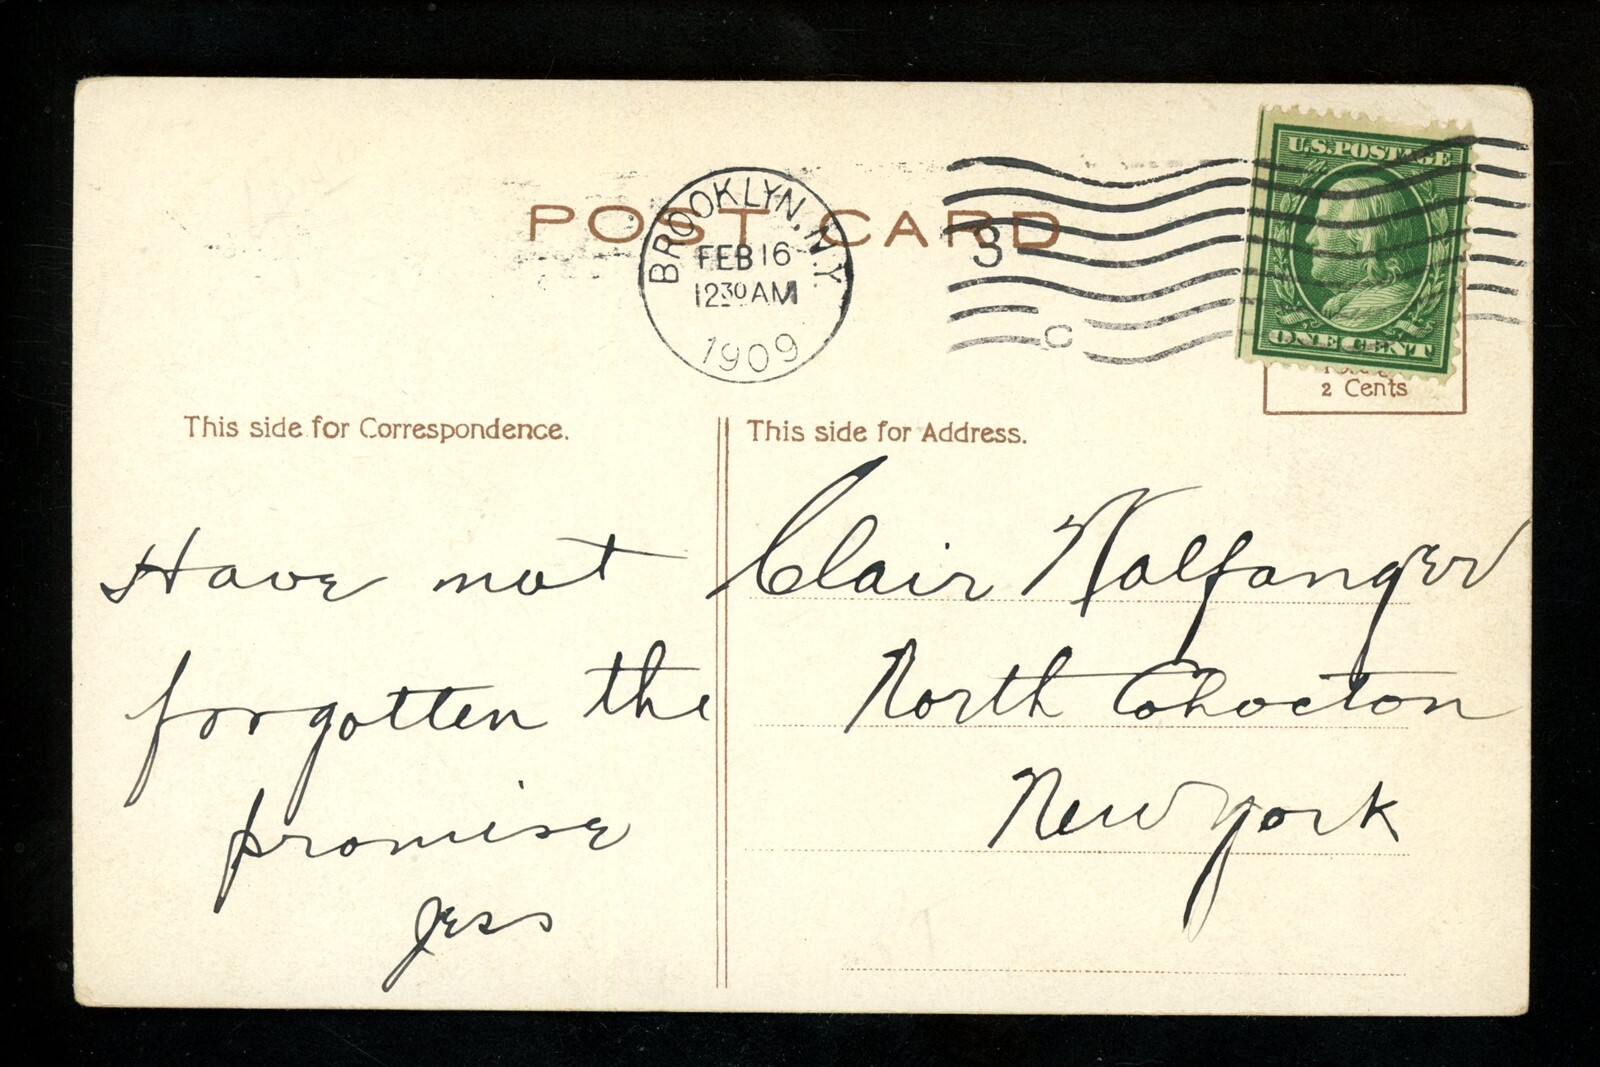 POST CARD
BROOKLYN, N.Y.
FEB 16
12 30 AM
1909
3
C
U.S. POSTAGE
ONE CENT
2 Cents
This side for Correspondence.
This side for Address.
Have not
forgotten the
promise
Jess
Clair Walfanger
North Cohocton
New York